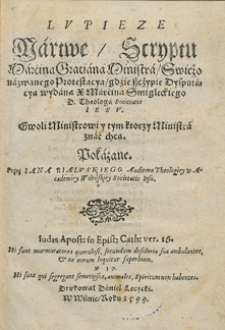 LVPIEZE
Mártwe / Scryptu
Márćina Gratiáná Ministrá / Swieżo
názwanego Protestacya / gdzie szczypie Dysputá-
cya wydána X Márćina Smigleckiego
D. Theologá Societatis
IESV.
Gwoli Ministrowi y tym ktorzy Ministrá
znáć chcą.
Pokázáne.
Przez IANA BIALVSKIEGO Auditora Theologiey w A-
cádemiey Wileńskiey Societatis Iesu.
Iudas Apost: in Epist: Cath: ver. 16.
Hi sunt murmuratores querulosi, secundum desideria sua ambulantes,
& os eorum loquitur superbiam.
V 19.
Hi sunt qui segregant semetipsos, animales, Spiritum non habentes.
Drukował Dániel Łęczycki.
W Wilnie / Roku 1599.